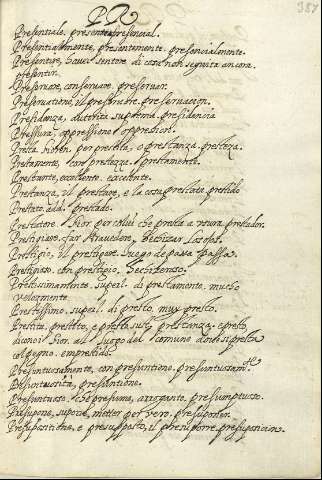 PR
387
Presentiale. presente presencial.
Presentialmente, presentemente. presencialmente.
Presentire, haver sentore di cosa non seguita ancora.
presentir.
Preservare, conservare. preservar.
Preservatione, il preservare. preservacion.
Presidenza, autorità suprema. presidencia
Pressura, oppressione. opression.
Presta Fioren. per prestito, o prestanza. presteza.
Prestamente. con prestezza. prestamente.
Prestante, excelente. excelente.
Prestanza, il prestare, e la cosa prestata prestido
Prestato. add. prestado.
Prestatore. Fior. per colui che presta a usura. prestador.
Prestigiare, far travedere, hechizar los ojos.
Prestigio, il prestigiare. Juego de passa passa.
Prestigioso. con prestigio. hechizeroso.
Pretiosissimamente. superl. di prestamente. mucho
velozmente.
Prestissimo. superl. di presto. muy presto.
Prestita, prestito, e presta sust. prestanza. e presto,
dicono i Fior. al luogo del comune dove si presta
col pegno. emprestido.
Presuntuosamente, con presuntione. presuntuosam.te
Presuntuosità, presuntione.
Presuntuoso. che presume, arrogante. presumptuoso.
Presupone, suporre, metter per vero. presuponer.
Presupositione, e presupposto, il presuporre. presuposicion.